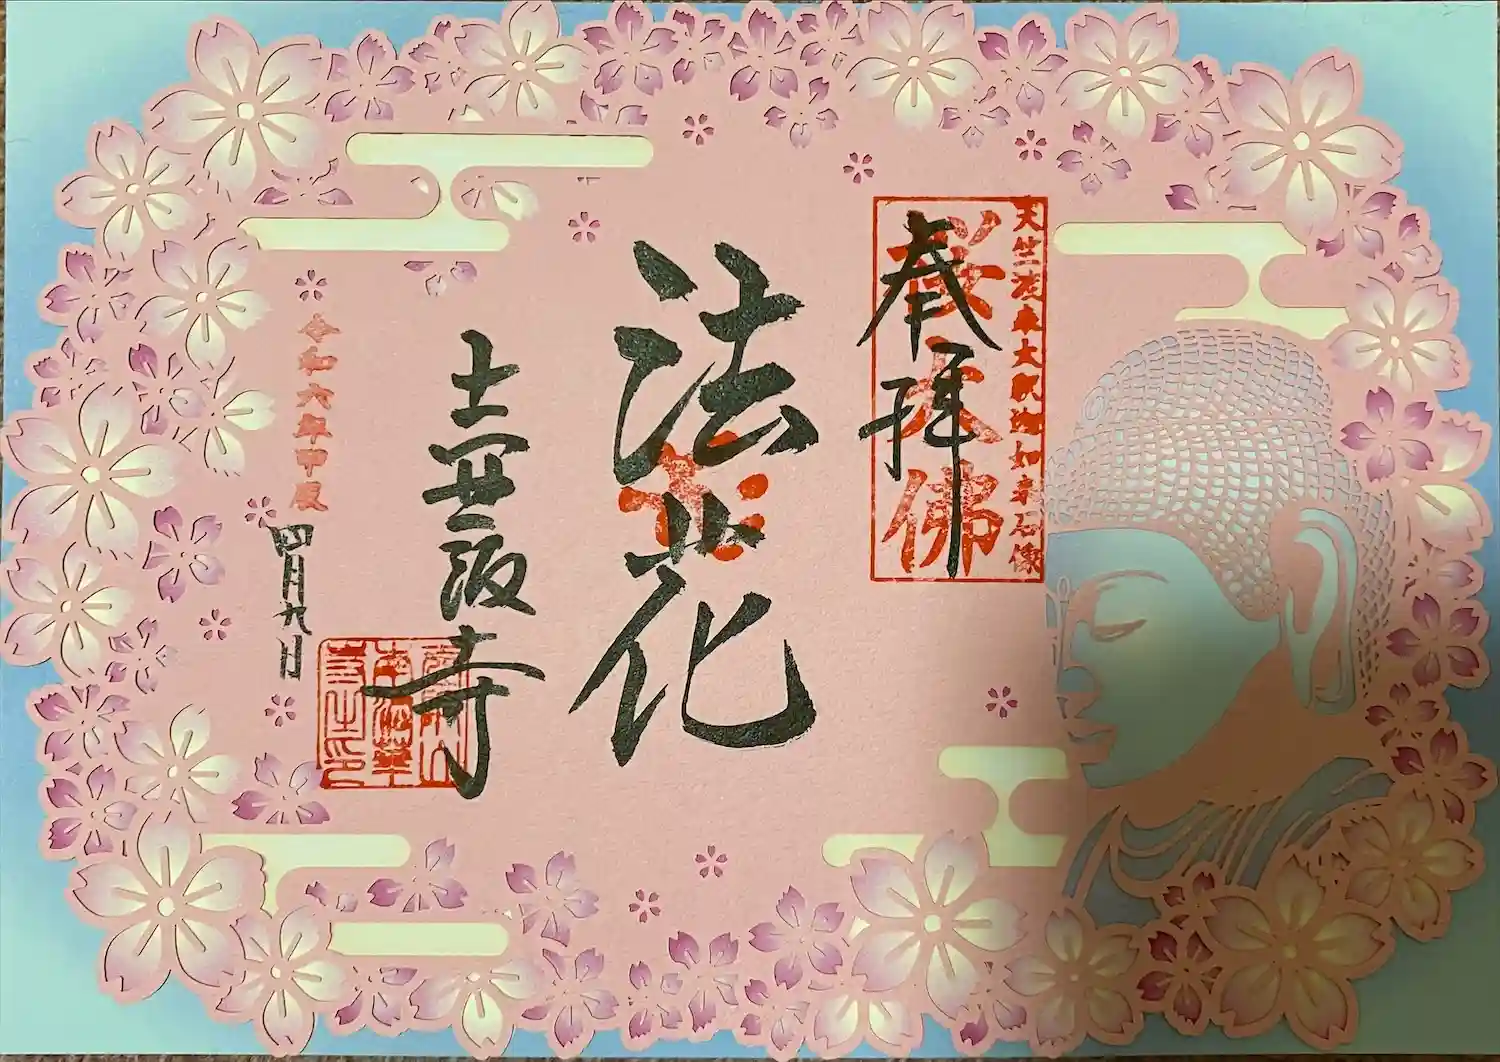 奉拝
桜大佛
天竺渡来大釈迦如来石像
法花
壷阪寺
令和六年甲辰
四月九日